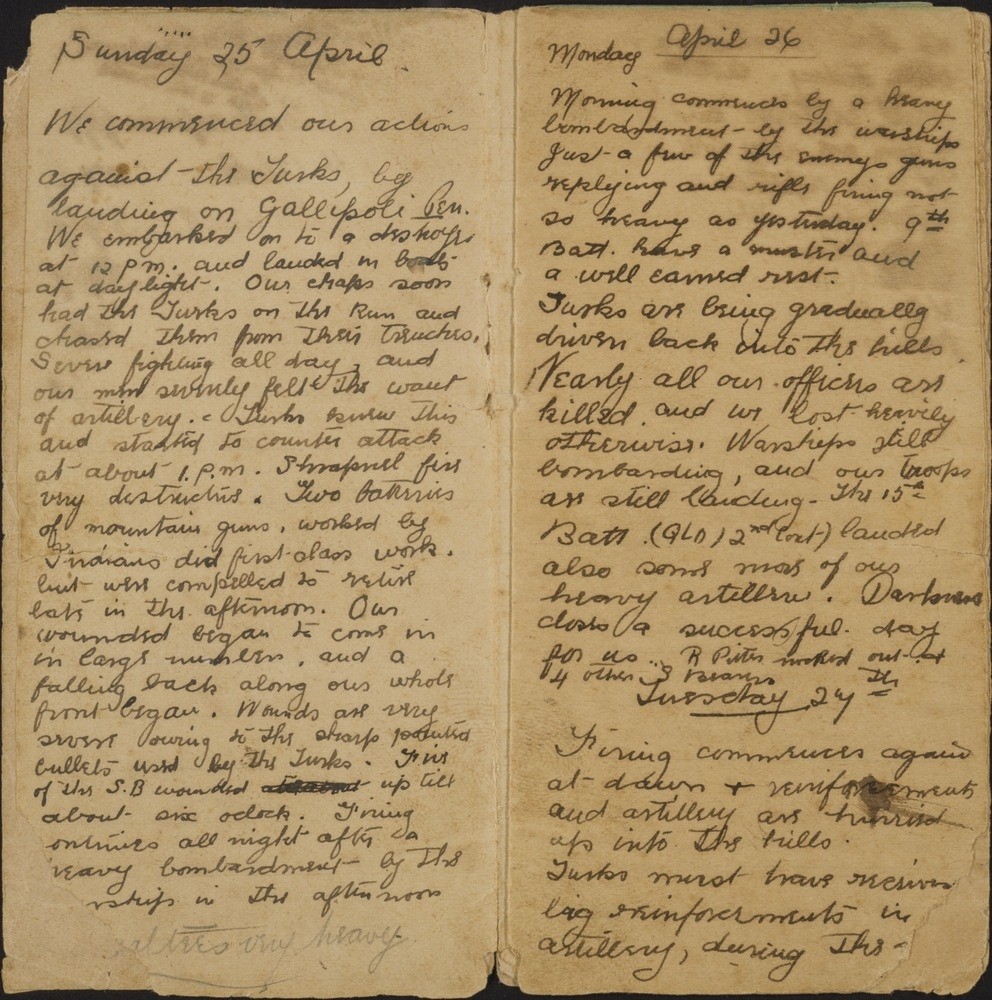 Sunday 25 April.
We commenced our actions
against the Turks, by
landing on Gallipoli Pen.
We embarked on to a destroyer
at 12 p.m. and landed in boats
at daylight. Our chaps soon
had the Turks on the run and
chased them from their trenches.
Severe fighting all day, and
our men severely felt the want
of artillery. Turks knew this
and started to counter attack
at about 1.p.m. Shrapnel fire
very destructive. Two batteries
of mountain guns, worked by
Indians did first-class work.
but were compelled to retire
late in the afternoon. Our
wounded began to come in
in large numbers, and a
falling back along our whole
front began. Wounds are very
severe owing to the sharp pointed
bullets used by the Turks. Five
of the S.B wounded up till
about six oclock. Firing
ontinues all night after a
heavy bombardment by the
rships in the afternoon
very heavy
Monday April 26
Morning commences by a heavy
bombardment by the warships
Just a few of the enemys guns
replying and rifle firing not
so heavy as yesterday. 9th
Batt. have a muster and
a well earned rest.
Turks are being gradually
driven back into the hills.
Nearly all our officers are
killed and we lost heavily
otherwise. Warships still
bombarding, and our troops
are still landing. The 15th
Batt. (QLD) 2nd Cont) landed
also some more of our
heavy artillery. Darkness
closes a successful day
for us. R Pitts knocked out
4 other S Bearers
Tuesday 27th
Firing commences again
at dawn + reinforcements
and artillery are hurried
up into the hills.
Turks must have receiven
big reinforcements in
artillery, during the